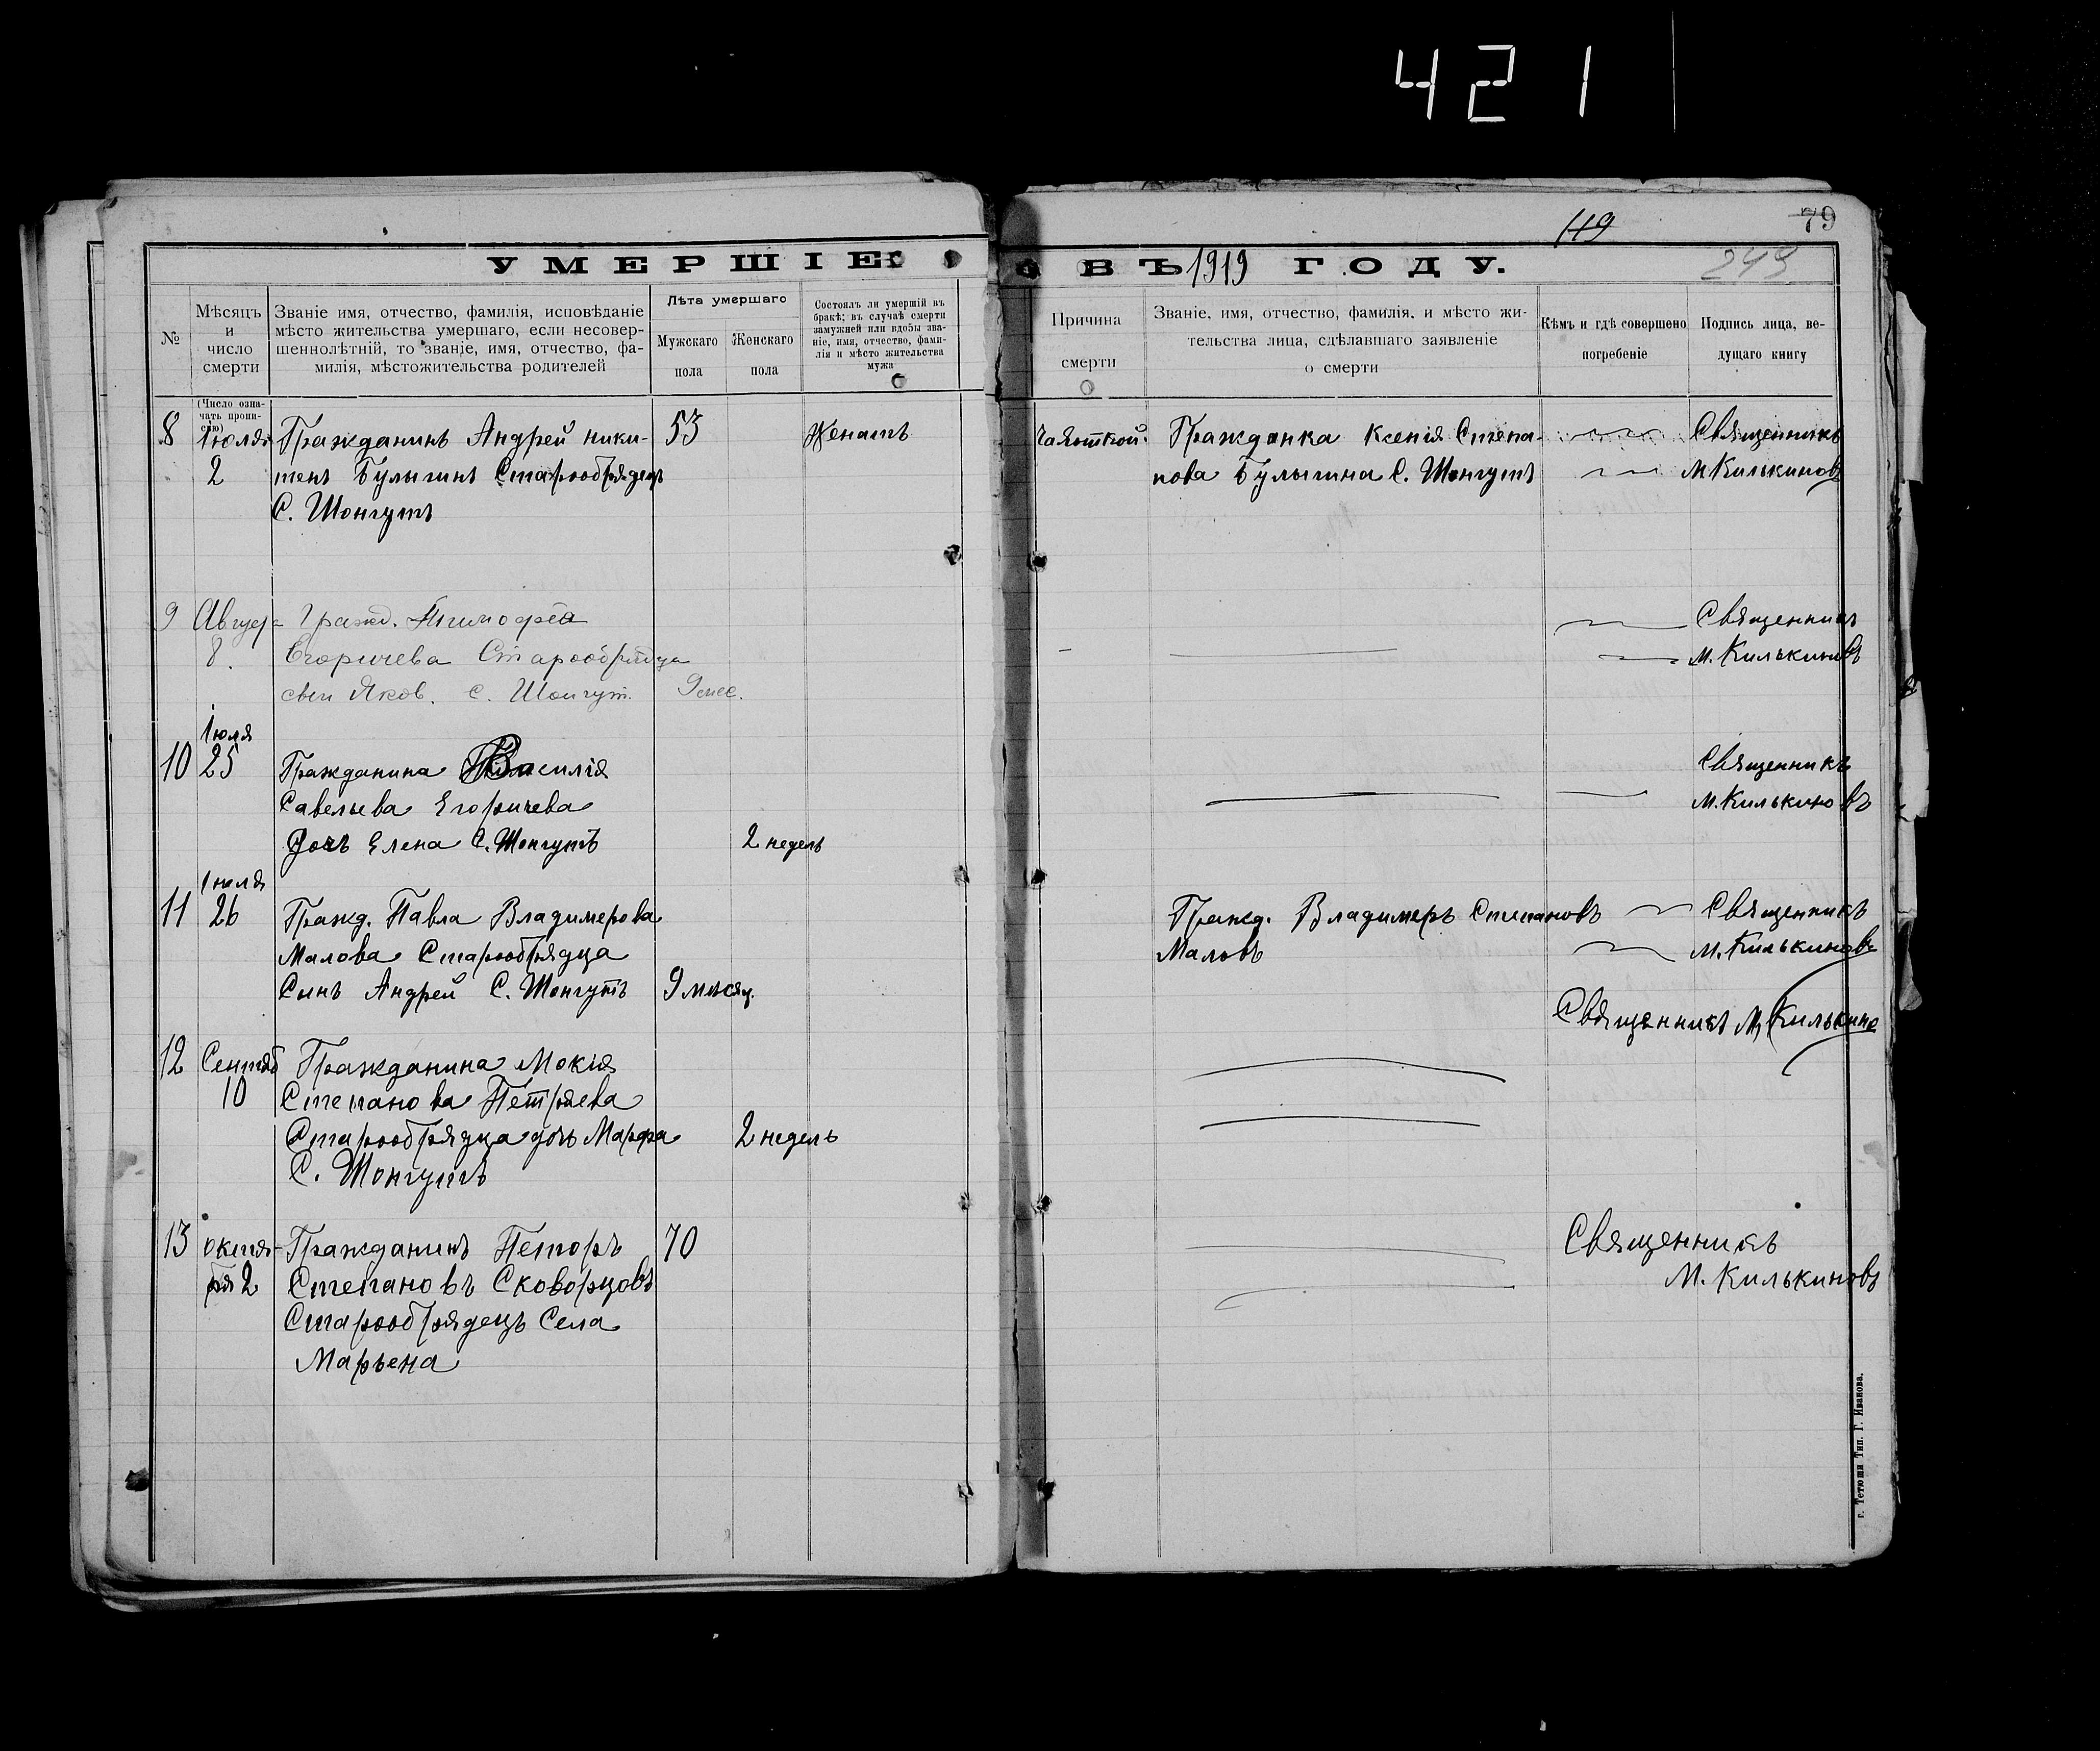 421
119
79
249
УМЕРШІЕ ВЪ 1919 ГОДУ.
№
Мѣсяцъ
и
число
смерти
(Число озна-
чать пропи-
сью)
Званіе имя, отчество, фамилія, исповѣданіе
мѣсто жительства умершаго, если несовер-
шеннолѣтній, то званіе, имя, отчество, фа-
милія, мѣстожительства родителей
Лѣта умершаго
Мужскаго
пола
Женскаго
пола
Состоялъ ли умершій въ
бракѣ; въ случаѣ смерти
замужней или вдовы зва-
ніе, имя, отчество, фами-
лія и мѣсто жительства
мужа
Причина
смерти
Званіе, имя, отчество, фамилія, и мѣсто жи-
тельства лица, сдѣлавшаго заявленіе
о смерти
Кѣмъ и гдѣ совершено
погребеніе
Подпись лица, ве-
дущаго книгу
8 Іюля Гражданинъ Андрей ники- 53 Женатъ Чахоткой Гражданка Ксенія Степа- Священникъ
2 тенъ Булыгинъ Старообрядецъ нова Булыгина С. Шонгутъ М. Килькиновъ
С. Шонгутъ
9 Август Гражд. Тимофея Священникъ
8. Егоричева Старообрядца М. Килькиновъ
сын Яков. с. Шонгут. 9 мес.
Іюля
10 25 Гражданина Василія Священникъ
Савельева Егоричева М. Килькиновъ
Дочь Елена С. Шонгутъ 2 недель
Іюля
11 26 Гражд. Павла Владимерова Гражд. Владимеръ Степановъ Священникъ
Малова Старообрядца Маловъ М. Килькиновъ
Сынъ Андрей С. Шонгутъ 9 мѣсяц.
Священникъ М. Килькино
12 Сентяб Гражданина Мокія
10 Степанова Петряева
Старообрядца дочь Марфа 2 недель
С. Шонгутъ
13 Октя- Гражданинъ Петоръ 70 Священникъ
бря 2 Степановъ Скворцовъ М. Килькиновъ
Старообрядецъ Села
Марьена
г. Тетюши Тип. Г. Иванова.